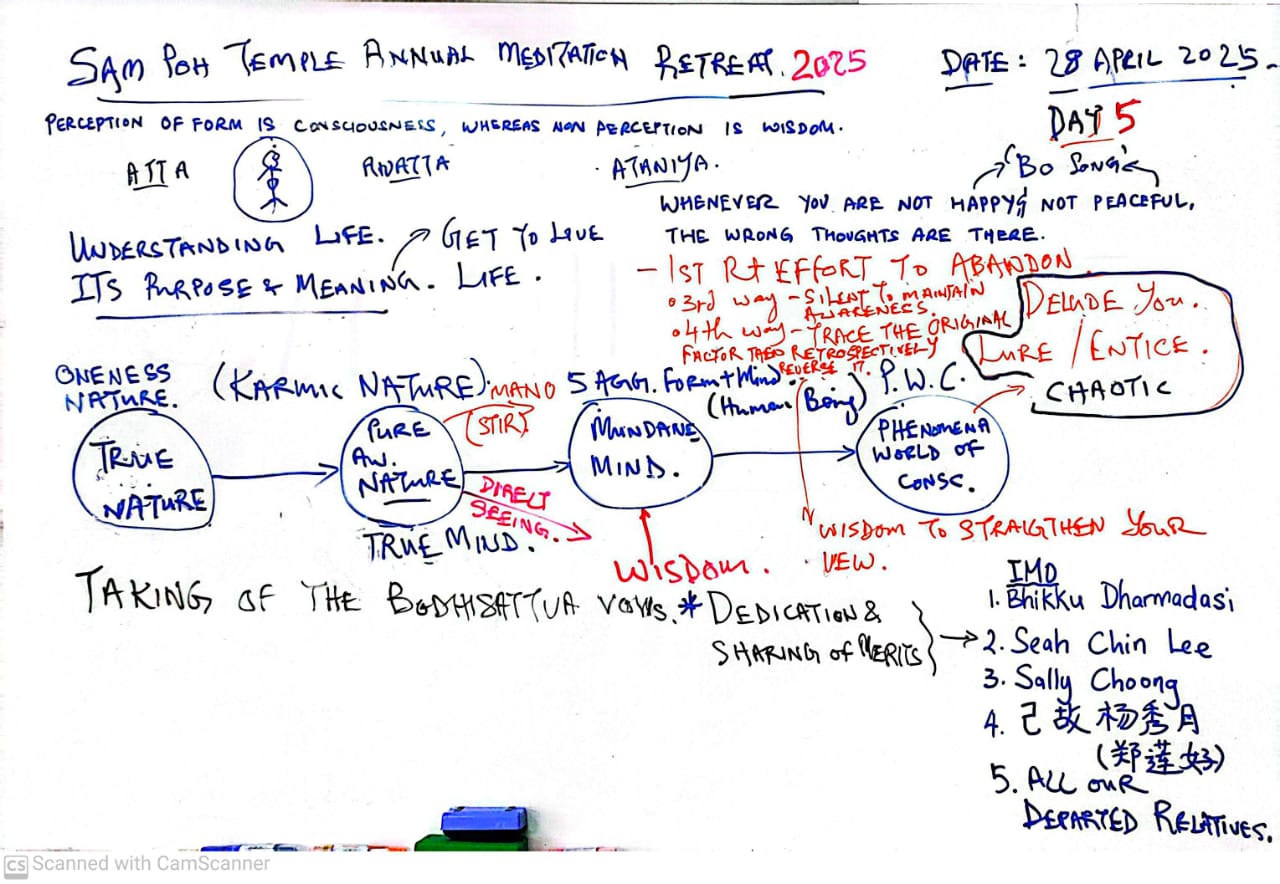 SAM POH TEMPLE ANNUAL MEDITATION RETREAT. 2025
DATE: 28 APRIL 2025.
DAY 5
PERCEPTION OF FORM IS CONSCIOUSNESS, WHEREAS NON PERCEPTION IS WISDOM.
ATTA
ANATTA
ATANIYA.
"BO SONG"
WHENEVER YOU ARE NOT HAPPY & NOT PEACEFUL,
THE WRONG THOUGHTS ARE THERE.
UNDERSTANDING LIFE.
ITS PURPOSE & MEANING.
GET TO LIVE
LIFE.
- 1ST Rt EFFORT TO ABANDON
• 3rd way - SILENT TO MAINTAIN
AWARENESS.
• 4th way - TRACE THE ORIGINAL
FACTOR THEN RETROSPECTIVELY
REVERSE IT.
DELUDE YOU.
LURE / ENTICE.
CHAOTIC
ONENESS
NATURE.
(KARMIC NATURE).
MANO
(STIR)
5 AGG. FORM + Mind.
(Human Being)
P.W.C.
TRUE
NATURE
PURE
AW.
NATURE
MUNDANE
MIND.
PHENOMENA
WORLD OF
CONSC.
DIRECT
SEEING.
TRUE MIND.
WISDOM.
WISDOM TO STRAIGTHEN YOUR
VIEW.
TAKING OF THE BODHISATTVA VOWS. * DEDICATION &
SHARING of MERITS
IMO
1. Bhikku Dharmadasi
2. Seah Chin Lee
3. Sally Choong
4. 己故杨秀月
(郑莲好)
5. ALL OUR
DEPARTED RELATIVES.
CS Scanned with CamScanner